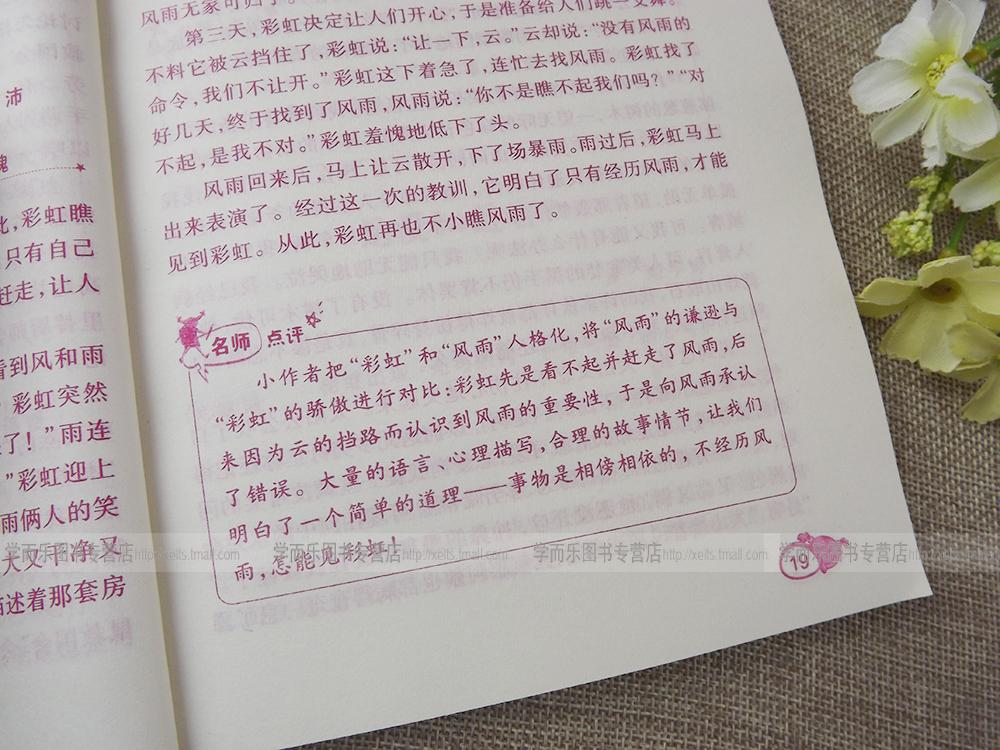 沛
魂
此，彩虹瞧
只有自己
赶走，让人
看到风和雨
彩虹突然
了！”雨连
”彩虹迎上
雨俩人的笑
大又干净，又
描述着那套房
风雨无家可归了。
第三天，彩虹决定让人们开心，于是准备给人们跳一支舞。
不料它被云挡住了，彩虹说：“让一下，云。”云却说：“没有风雨的
命令，我们不让开。”彩虹这下着急了，连忙去找风雨。彩虹找了
好几天，终于找到了风雨，风雨说：“你不是瞧不起我们吗？”“对
不起，是我不对。”彩虹羞愧地低下了头。
风雨回来后，马上让云散开，下了场暴雨。雨过后，彩虹马上
出来表演了。经过这一次的教训，它明白了只有经历风雨，才能
见到彩虹。从此，彩虹再也不小瞧风雨了。
名师 点评
小作者把“彩虹”和“风雨”人格化，将“风雨”的谦逊与
“彩虹”的骄傲进行对比：彩虹先是看不起并赶走了风雨，后
来因为云的挡路而认识到风雨的重要性，于是向风雨承认
了错误。大量的语言、心理描写，合理的故事情节，让我们
明白了一个简单的道理——事物是相傍相依的，不经历风
雨，怎能见彩虹！
19
学而乐图书专营店http://xelts.tmall.com
学而乐图书专营店http://xelts.tmall.com
学而乐图书专营店